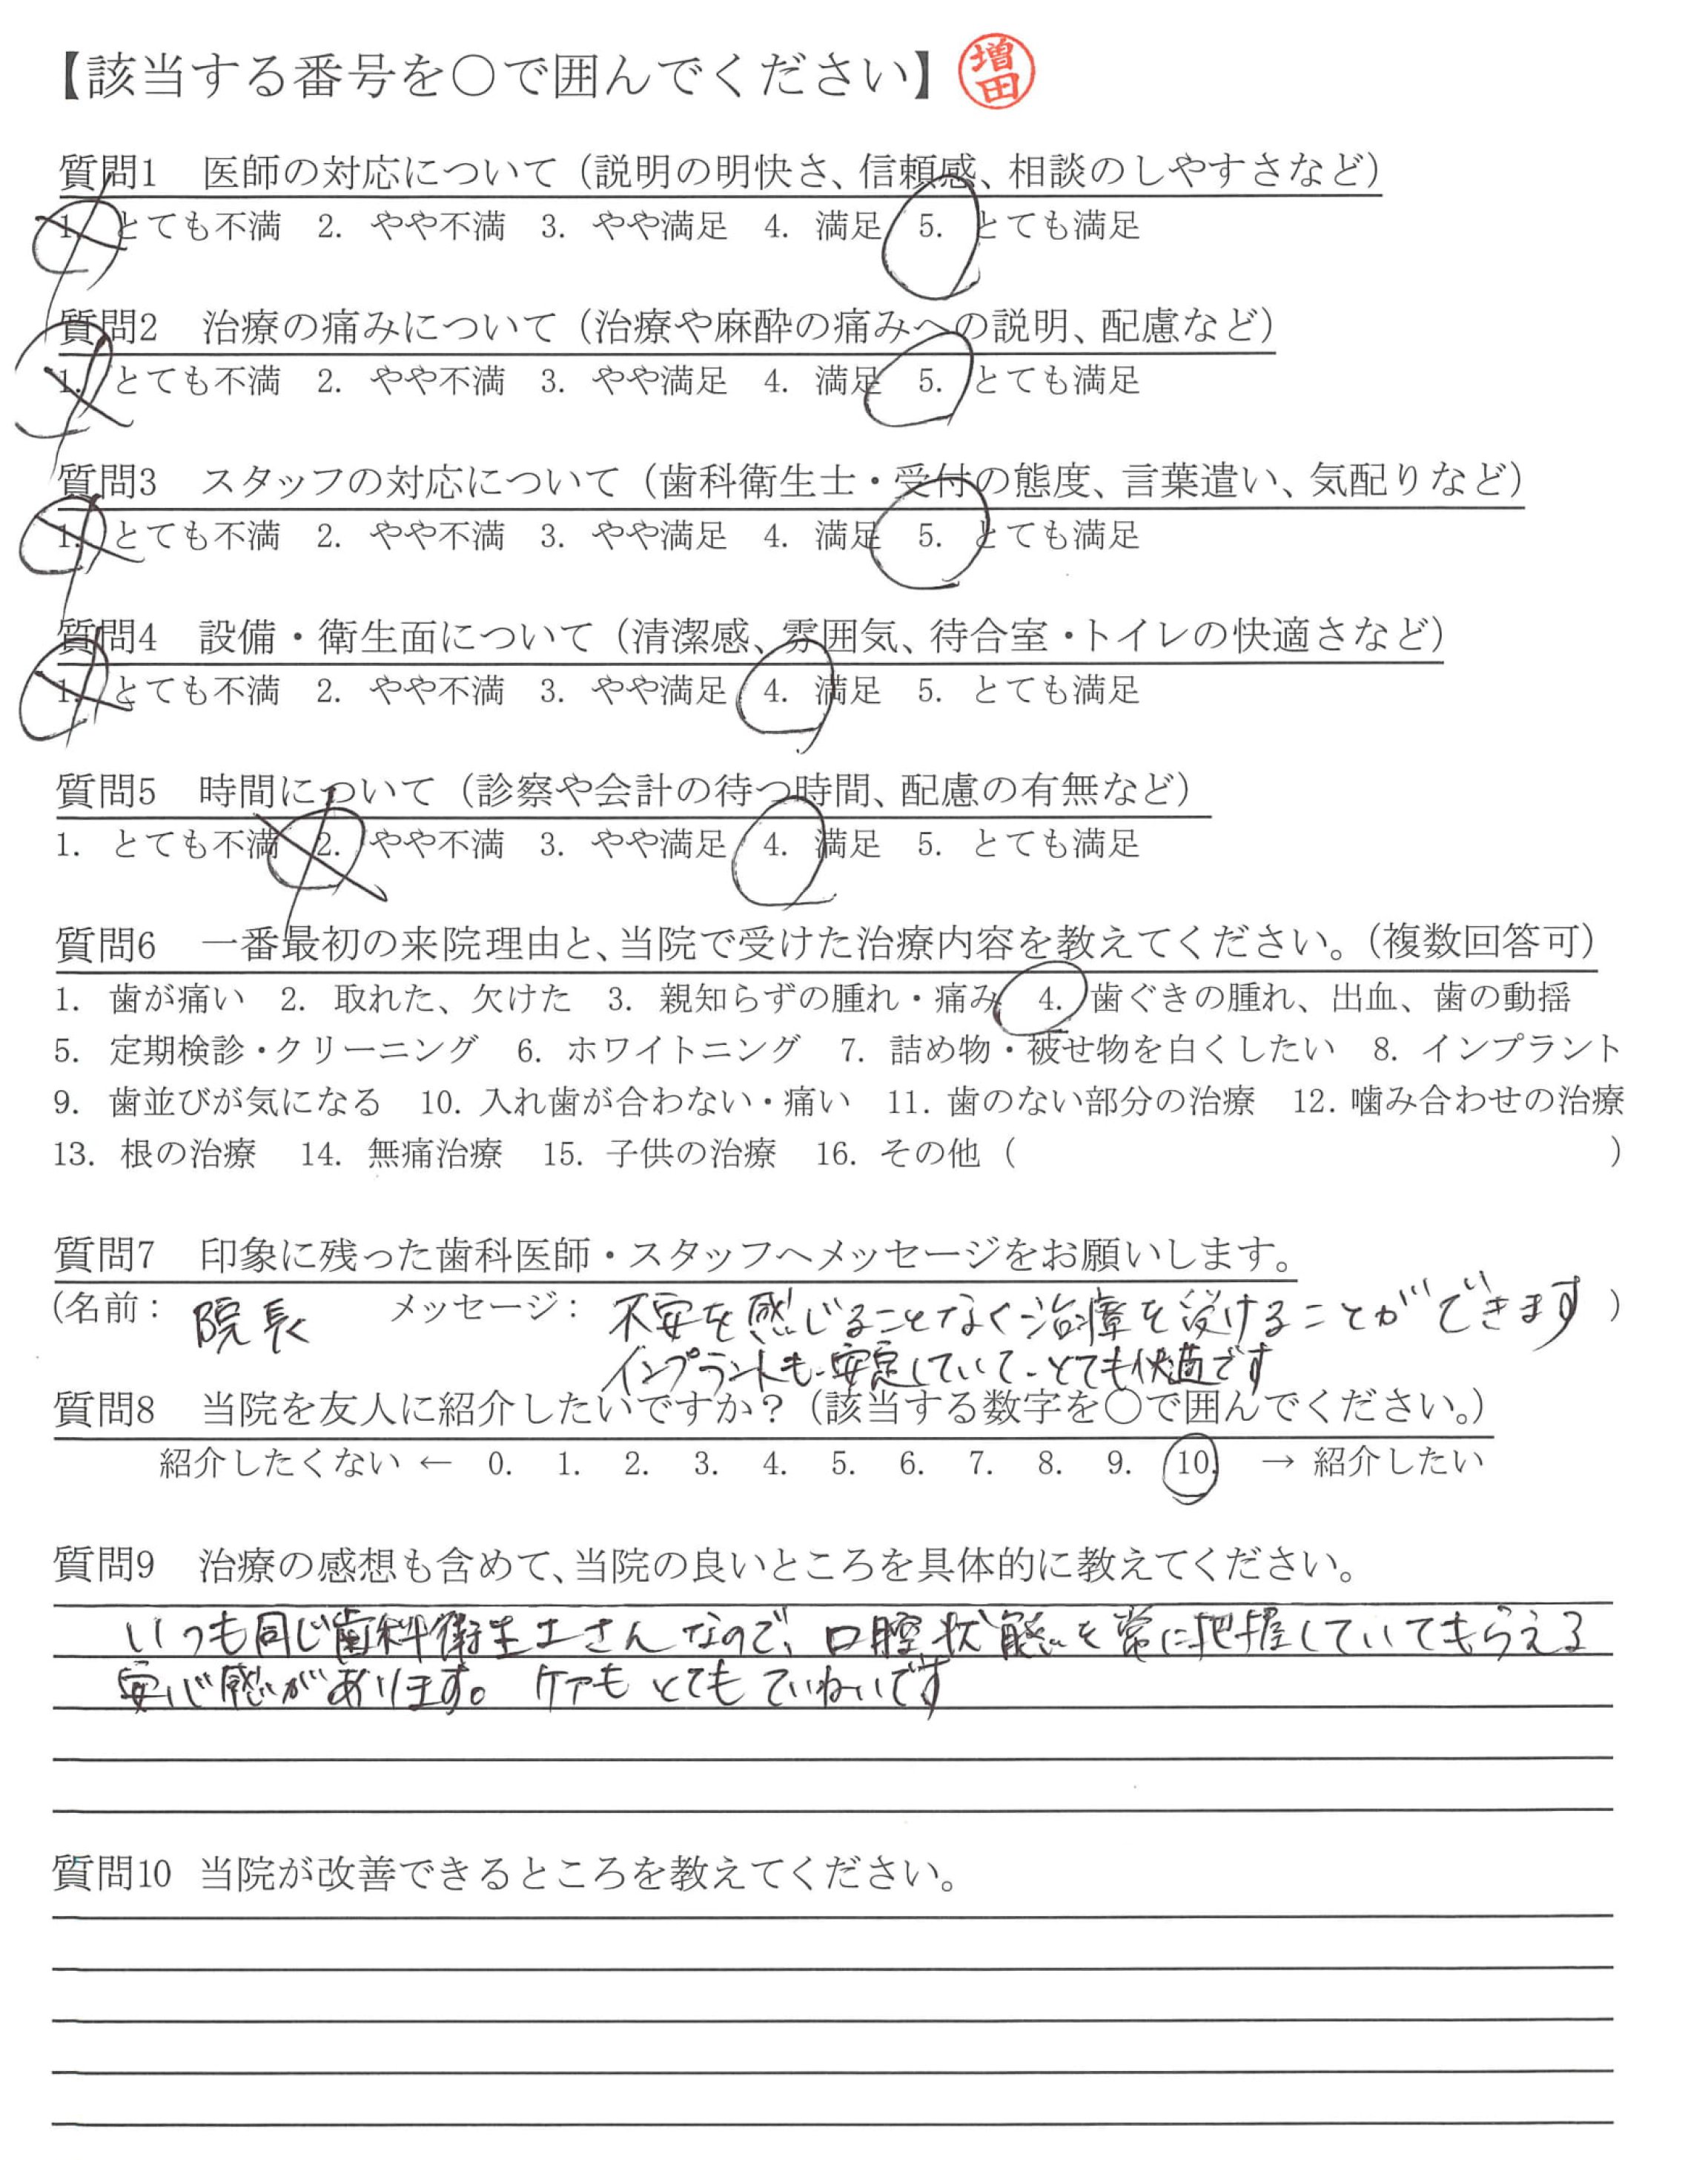 【該当する番号を○で囲んでください】 増田
質問1 医師の対応について（説明の明快さ、信頼感、相談のしやすさなど）
1. とても不満 2. やや不満 3. やや満足 4. 満足 5. とても満足
質問2 治療の痛みについて（治療や麻酔の痛みへの説明、配慮など）
1. とても不満 2. やや不満 3. やや満足 4. 満足 5. とても満足
質問3 スタッフの対応について（歯科衛生士・受付の態度、言葉遣い、気配りなど）
1. とても不満 2. やや不満 3. やや満足 4. 満足 5. とても満足
質問4 設備・衛生面について（清潔感、雰囲気、待合室・トイレの快適さなど）
1. とても不満 2. やや不満 3. やや満足 4. 満足 5. とても満足
質問5 時間について（診察や会計の待つ時間、配慮の有無など）
1. とても不満 2. やや不満 3. やや満足 4. 満足 5. とても満足
質問6 一番最初の来院理由と、当院で受けた治療内容を教えてください。（複数回答可）
1. 歯が痛い 2. 取れた、欠けた 3. 親知らずの腫れ・痛み 4. 歯ぐきの腫れ、出血、歯の動揺
5. 定期検診・クリーニング 6. ホワイトニング 7. 詰め物・被せ物を白くしたい 8. インプラント
9. 歯並びが気になる 10. 入れ歯が合わない・痛い 11. 歯のない部分の治療 12. 噛み合わせの治療
13. 根の治療 14. 無痛治療 15. 子供の治療 16. その他（ ）
質問7 印象に残った歯科医師・スタッフへメッセージをお願いします。
（名前： 院長 メッセージ： 不安を感じることなく治療を受けることができます ）
インプラントも安定していて、とても快適です
質問8 当院を友人に紹介したいですか？（該当する数字を○で囲んでください。）
紹介したくない ← 0. 1. 2. 3. 4. 5. 6. 7. 8. 9. 10. → 紹介したい
質問9 治療の感想も含めて、当院の良いところを具体的に教えてください。
いつも同じ歯科衛生士さんなので、口腔状態を常に把握していてもらえる
安心感があります。ケアもとてもていねいです
質問10 当院が改善できるところを教えてください。